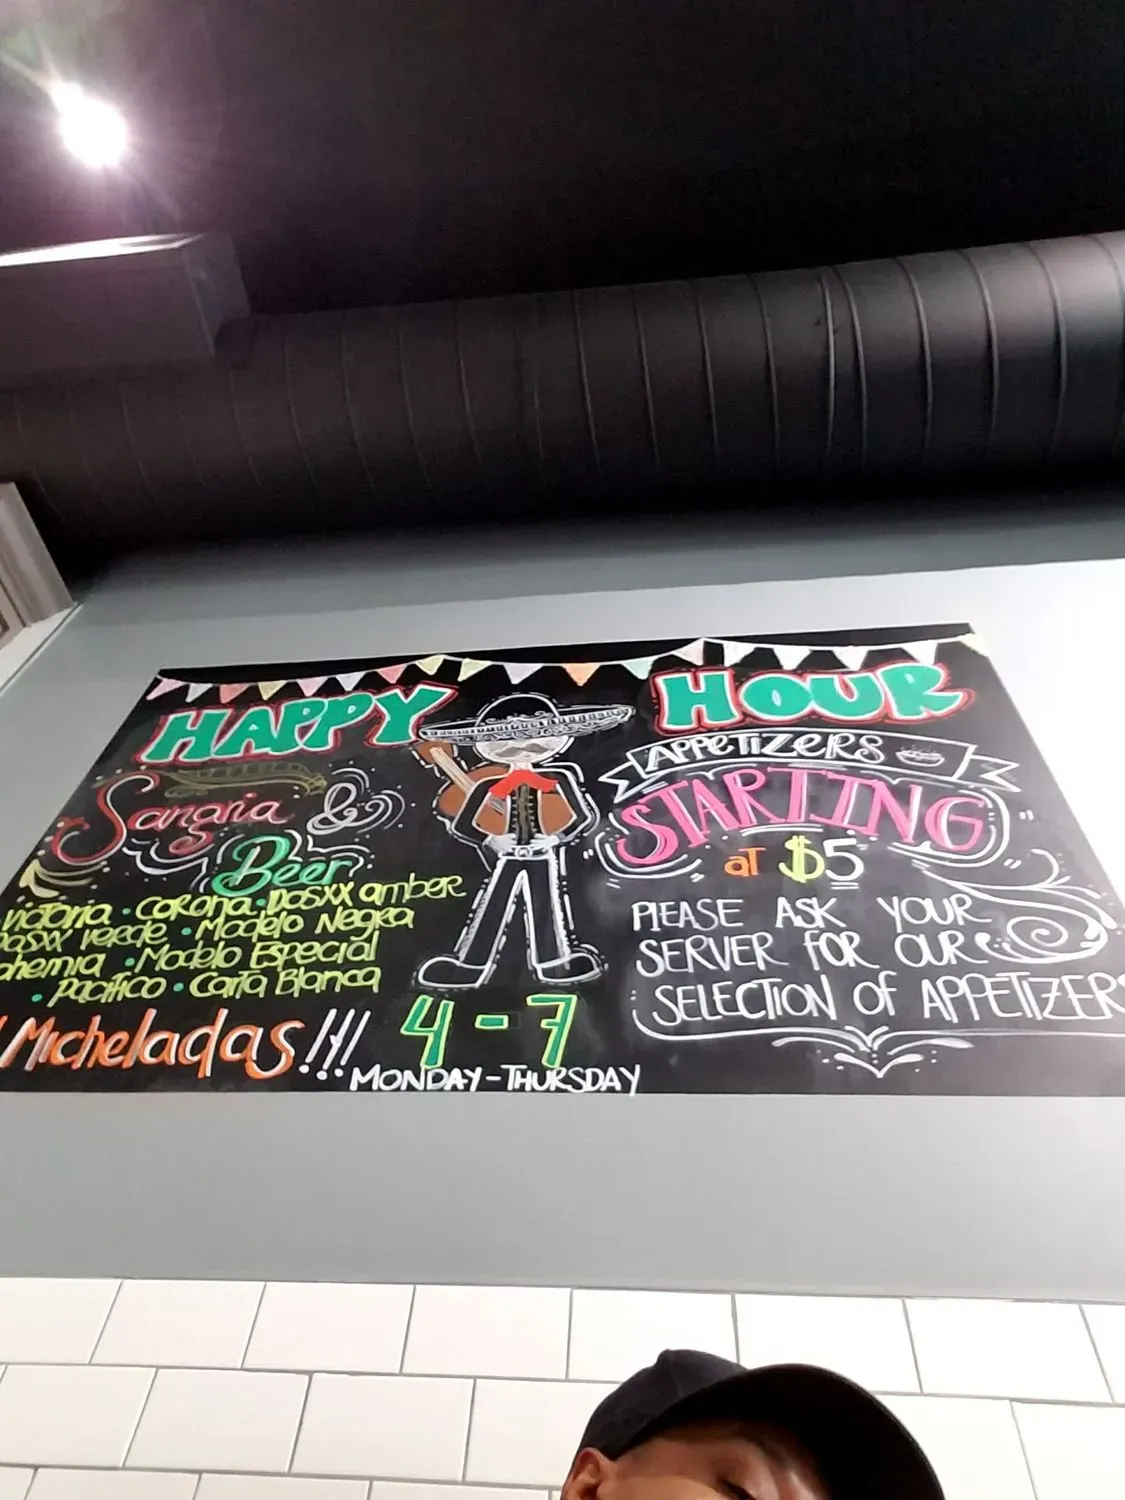 HAPPY HOUR
Sangria &
Beer
Victoria • Corona • Dosxx amber
Dosxx verde • Modelo Negra
• Modelo Especial
• Pacifico • Carta Blanca
Micheladas!!!
4-7
MONDAY-THURSDAY
APPETIZERS
STARTING
at $5
PLEASE ASK YOUR
SERVER FOR OUR
SELECTION OF APPETIZERS